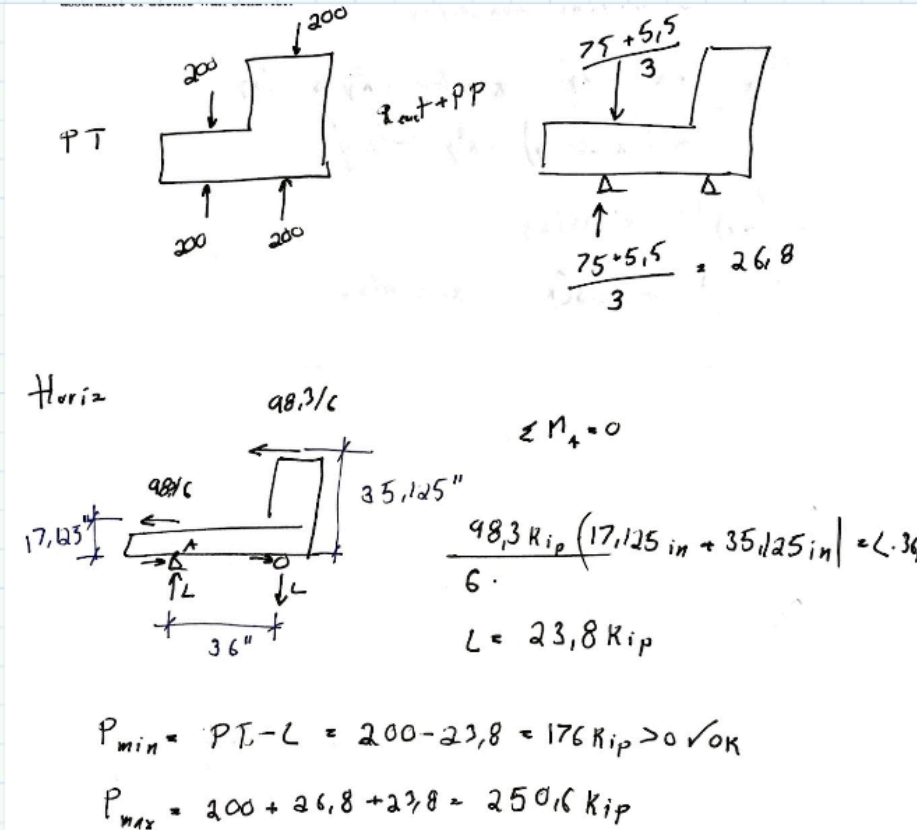 200
200
PT
200
200
+PP
75+5,5
3
75+5,5
3
= 26,8
Horiz
98,3/6
98,3/6
35,125"
17,125"
A
L
L
36"
Σ M_A = 0
98,3 Kip (17,125 in + 35,125 in) = L.36
6
L = 23,8 Kip
P_min = PT-L = 200-23,8 = 176 Kip >0 ✓OK
P_max = 200 + 26,8 + 23,8 = 250,6 Kip